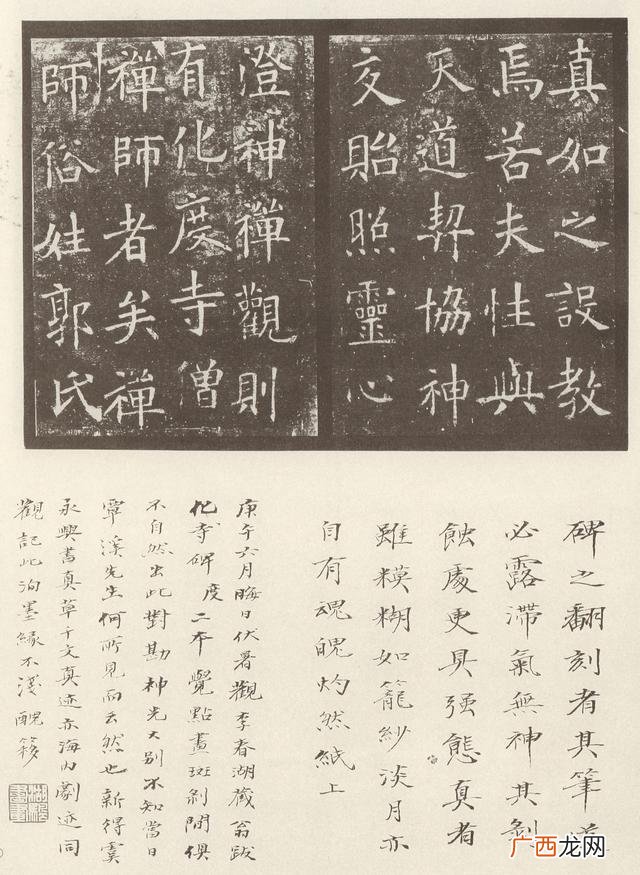 真如之設教
焉若夫性與
天道契協神
交貽照靈心
澄神禪觀則
有化度寺僧
禪師者矣禪
師俗姓郭氏
碑之翻刻者其筆
必露滯氣無神其剝
蝕處更具强態真者
雖糢糊如籠紗淡月亦
自有魂魄灼然紙上
庚午六月晦日伏暑觀李春湖藏翁跋
化寺碑度二本覺點畫斑剝間俱
不自然出此對勘神光大別不知當日
覃溪先生何所見而云然也新得虞
永興書真草千文真迹亦海内劇迹同
觀記此洵墨緣不淺 醜簃
广西龙网